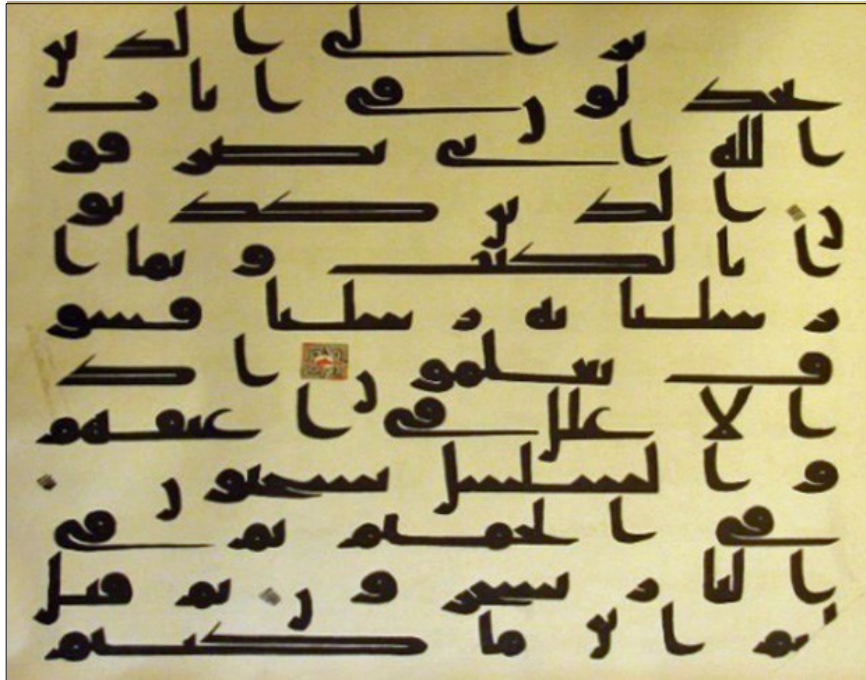 تر الى الذين
يجدلون فى ايات
الله انى يصرفو
ن الذين كذبو
ا بالكتب و بما ا
رسلنا به رسلنا فسو
ف يعلمون اذ
الاغلل فى اعنقهم
و السلسل يسحبون
فى الحميم ثم فى
النار يسجرون ثم قيل
لهم اين ما كنتم